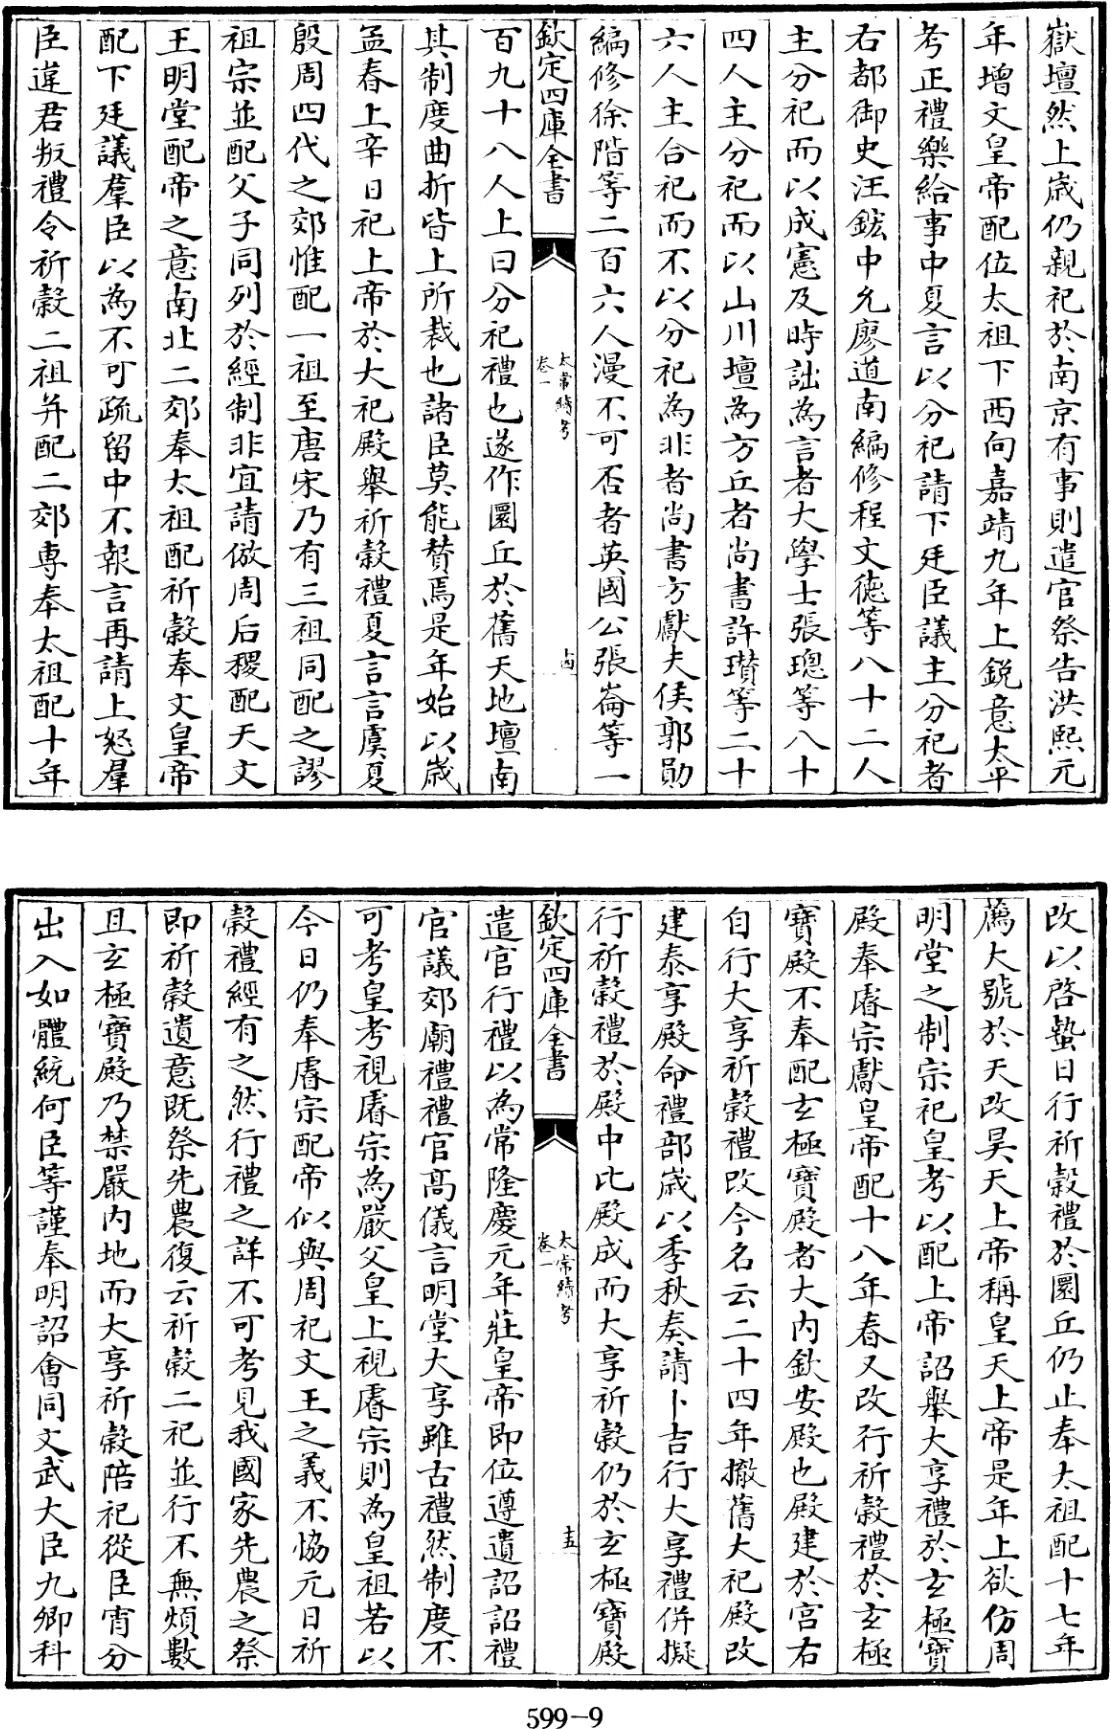 嶽壇然上歲仍親祀於南京有事則遣官祭告洪熙元
年增文皇帝配位太祖下西向嘉靖九年上銳意太平
考正禮樂給事中夏言以分祀請下廷臣議主分祀者
右都御史汪鋐中允廖道南編修程文德等八十二人
主分祀而以成憲及時詘為言者大學士張璁等八十
四人主分祀而以山川壇為方丘者尚書許瓚等二十
六人主合祀而不以分祀為非者尚書方獻夫侯郭勛
編修徐階等二百六人漫不可否者英國公張崙等一
欽定四庫全書
太常續考
卷一
十四
百九十八人上曰分祀禮也遂作圜丘於舊天地壇南
其制度曲折皆上所裁也諸臣莫能賛焉是年始以歲
孟春上辛日祀上帝於大祀殿舉祈穀禮夏言言虞夏
殷周四代之郊惟配一祖至唐宋乃有三祖同配之謬
祖宗並配父子同列於經制非宜請倣周后稷配天文
王明堂配帝之意南北二郊奉太祖配祈穀奉文皇帝
配下廷議羣臣以為不可疏留中不報言再請上怒羣
臣違君叛禮令祈穀二祖并配二郊專奉太祖配十年
改以啓蟄日行祈穀禮於圜丘仍止奉太祖配十七年
薦大號於天改昊天上帝稱皇天上帝是年上欲仿周
明堂之制宗祀皇考以配上帝詔舉大享禮於玄極寶
殿奉睿宗獻皇帝配十八年春又改行祈穀禮於玄極
寶殿不奉配玄極寶殿者大內欽安殿也殿建於宮右
自行大享祈穀禮改今名云二十四年撤舊大祀殿改
建泰享殿命禮部歲以季秋奏請卜吉行大享禮併擬
行祈穀禮於殿中比殿成而大享祈穀仍於玄極寶殿
欽定四庫全書
太常續考
卷一
十五
遣官行禮以為常隆慶元年莊皇帝即位遵遺詔詔禮
官議郊廟禮禮官高儀言明堂大享雖古禮然制度不
可考皇考視睿宗為嚴父皇上視睿宗則為皇祖若以
今日仍奉睿宗配帝似與周祀文王之義不協元日祈
穀禮經有之然行禮之詳不可考見我國家先農之祭
即祈穀遺意既祭先農復云祈穀二祀並行不無煩數
且玄極寶殿乃禁嚴內地而大享祈穀陪祀從臣宵分
出入如體統何臣等謹奉明詔會同文武大臣九卿科
599-9